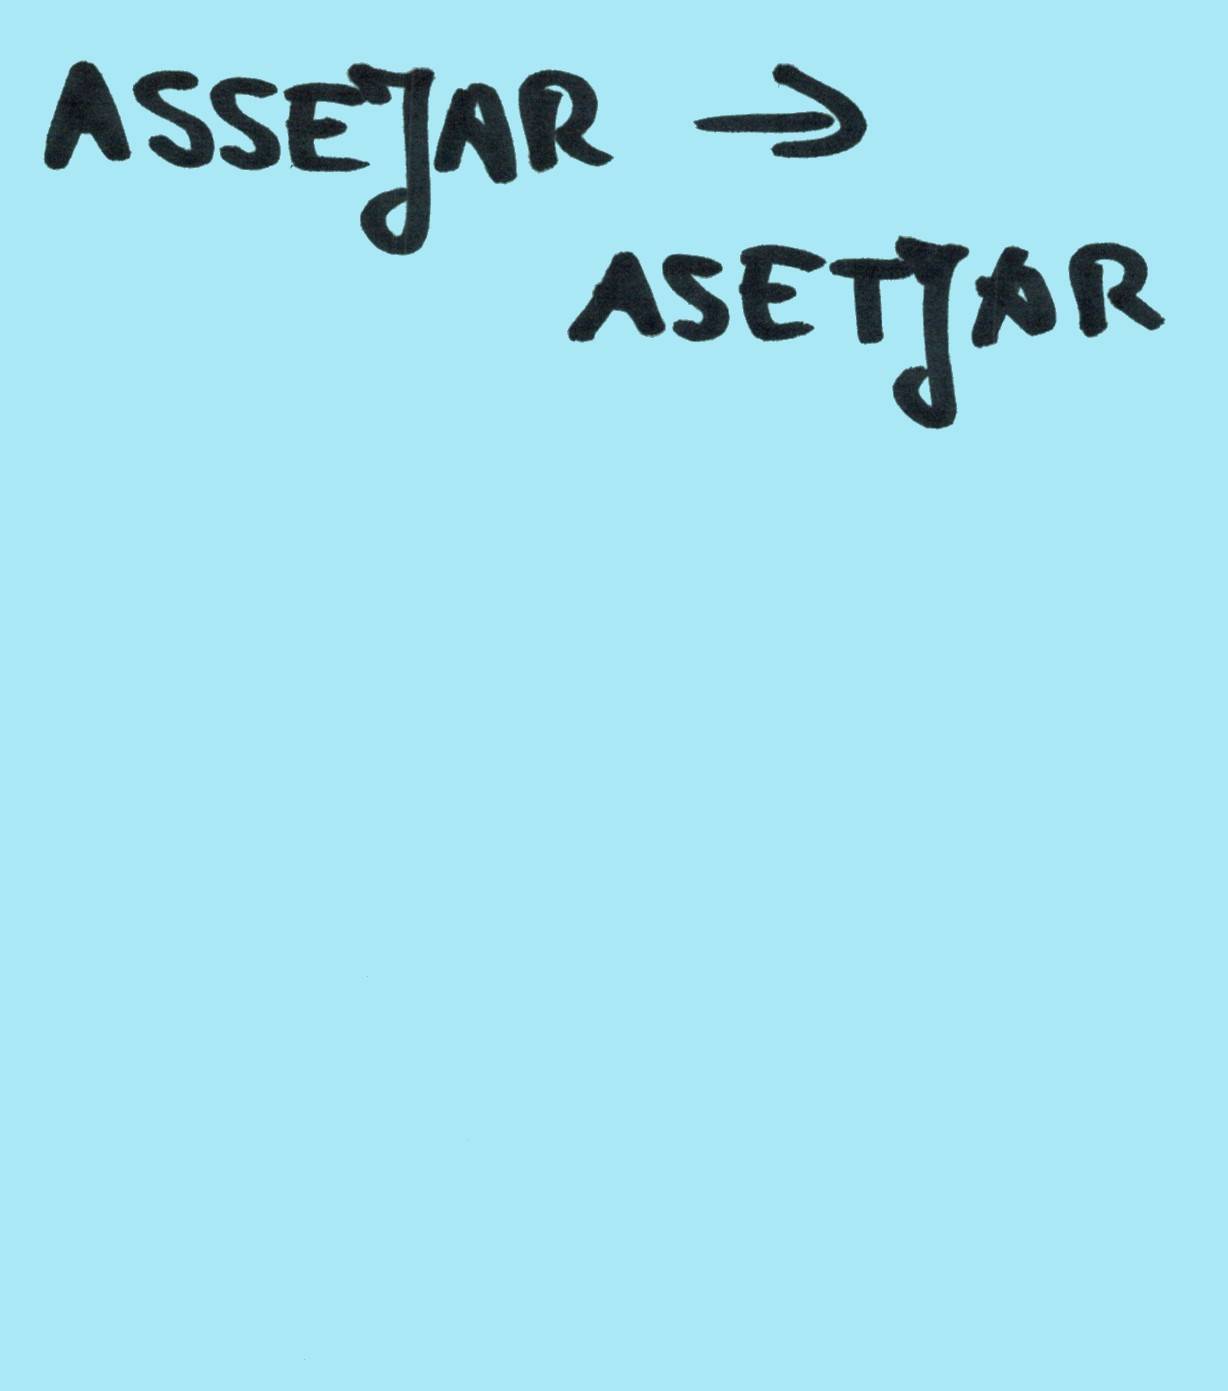 ASSEJAR →
ASETJAR